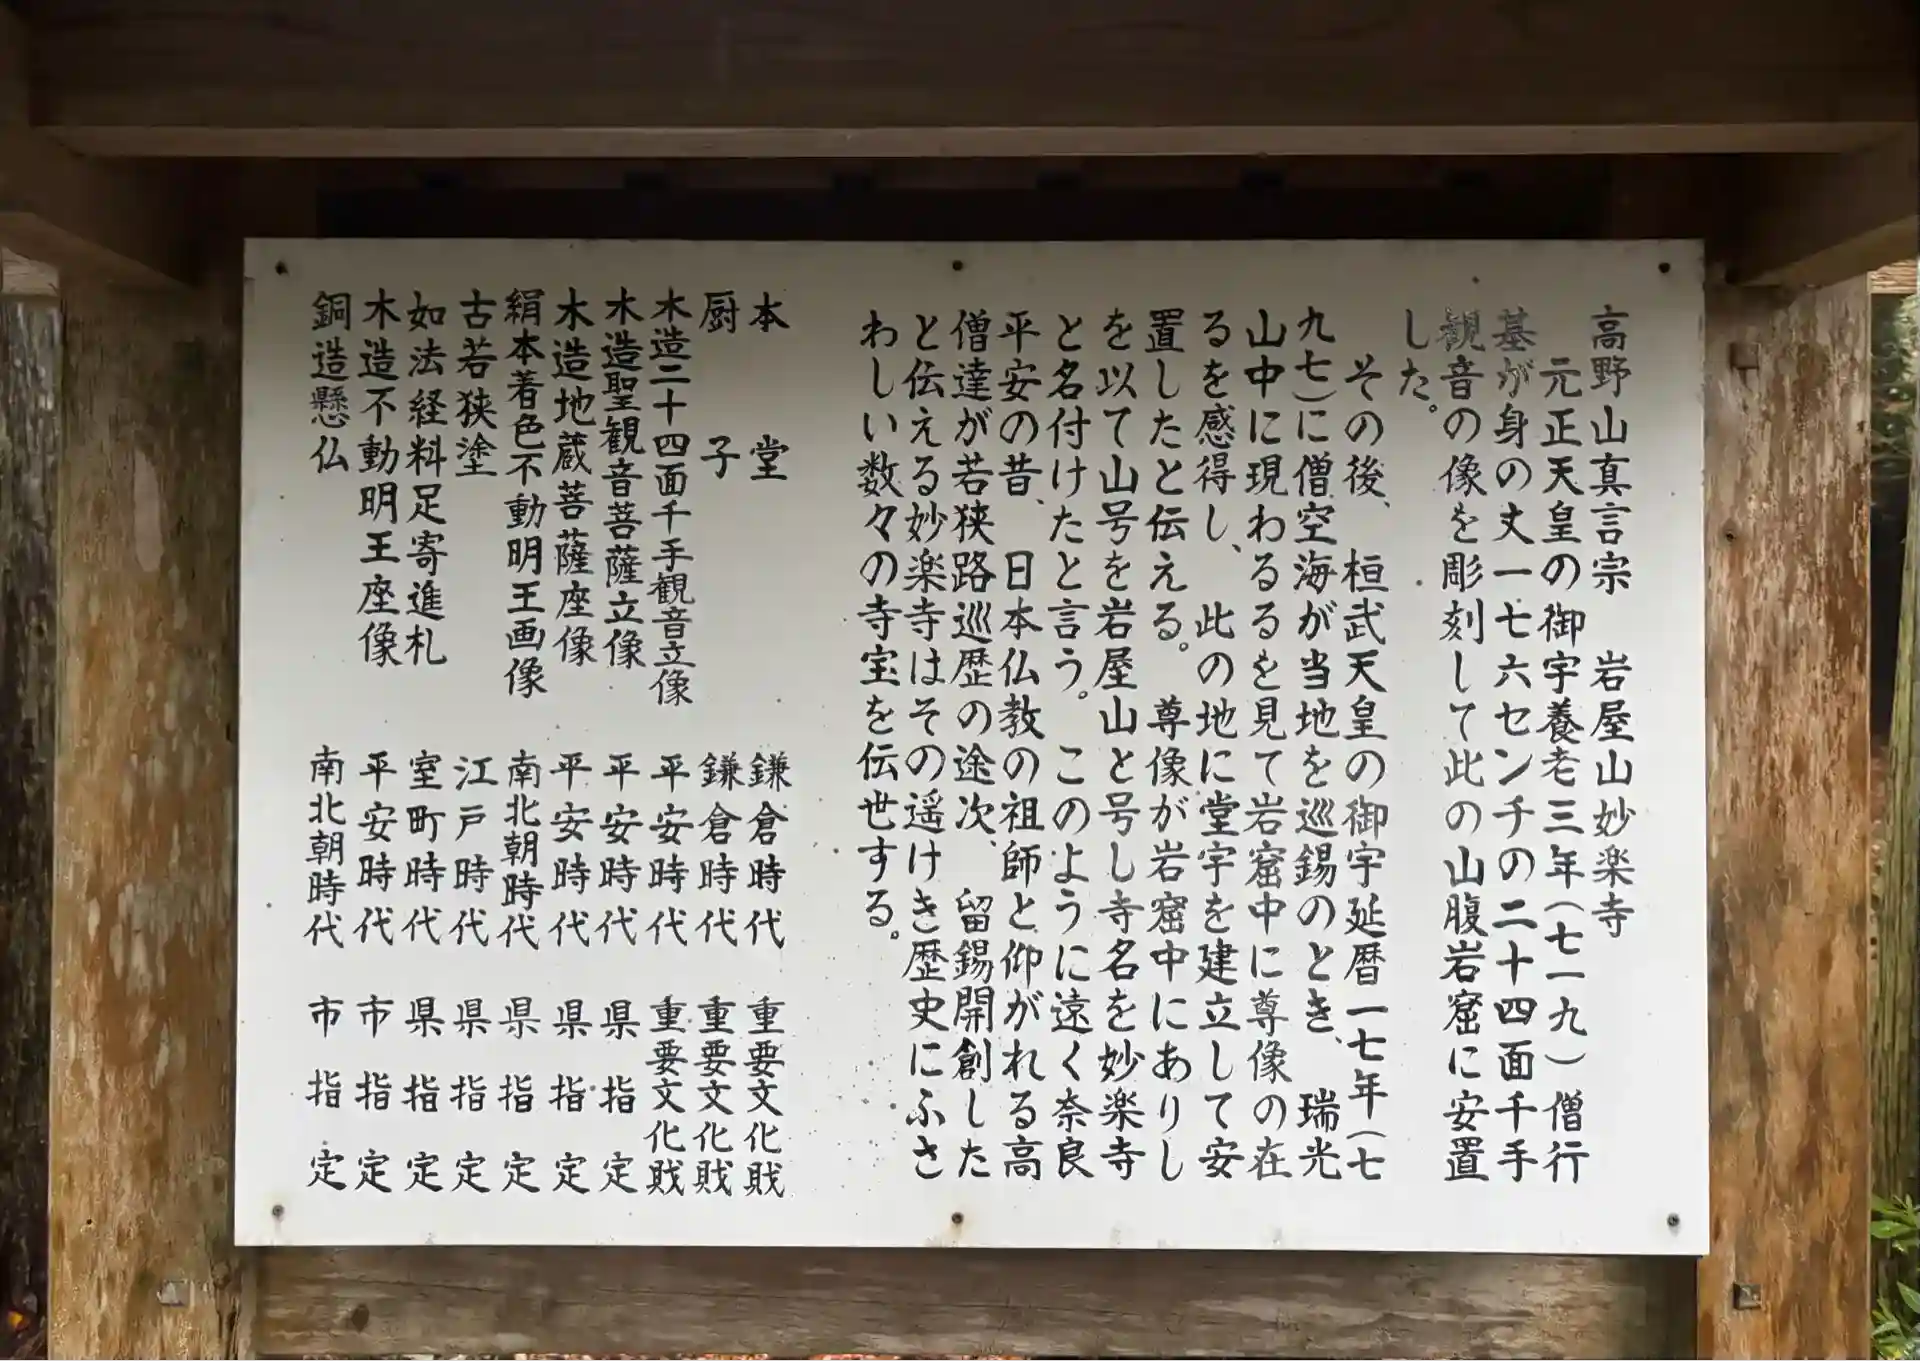 高野山真言宗　岩屋山妙楽寺
元正天皇の御宇養老三年(七一九)僧行
基が身の丈一七六センチの二十四面千手
観音の像を彫刻して此の山腹岩窟に安置
した。
その後、桓武天皇の御宇延暦一七年(七
九七)に僧空海が当地を巡錫のとき、瑞光
山中に現わるるを見て岩窟中に尊像の在
るを感得し、此の地に堂宇を建立して安
置したと伝える。尊像が岩窟中にありし
を以て山号を岩屋山と号し寺名を妙楽寺
と名付けたと言う。このように遠く奈良
平安の昔、日本仏教の祖師と仰がれる高
僧達が若狭路巡歴の途次、留錫開創した
と伝える妙楽寺はその遥けき歴史にふさ
わしい数々の寺宝を伝世する。
本堂　鎌倉時代　重要文化財
厨子　鎌倉時代　重要文化財
木造二十四面千手観音立像　平安時代　重要文化財
木造聖観音菩薩立像　平安時代　県指定
木造地蔵菩薩座像　平安時代　県指定
絹本着色不動明王画像　南北朝時代　県指定
古若狭塗　江戸時代　県指定
如法経料足寄進札　室町時代　県指定
木造不動明王座像　平安時代　市指定
銅造懸仏　南北朝時代　市指定